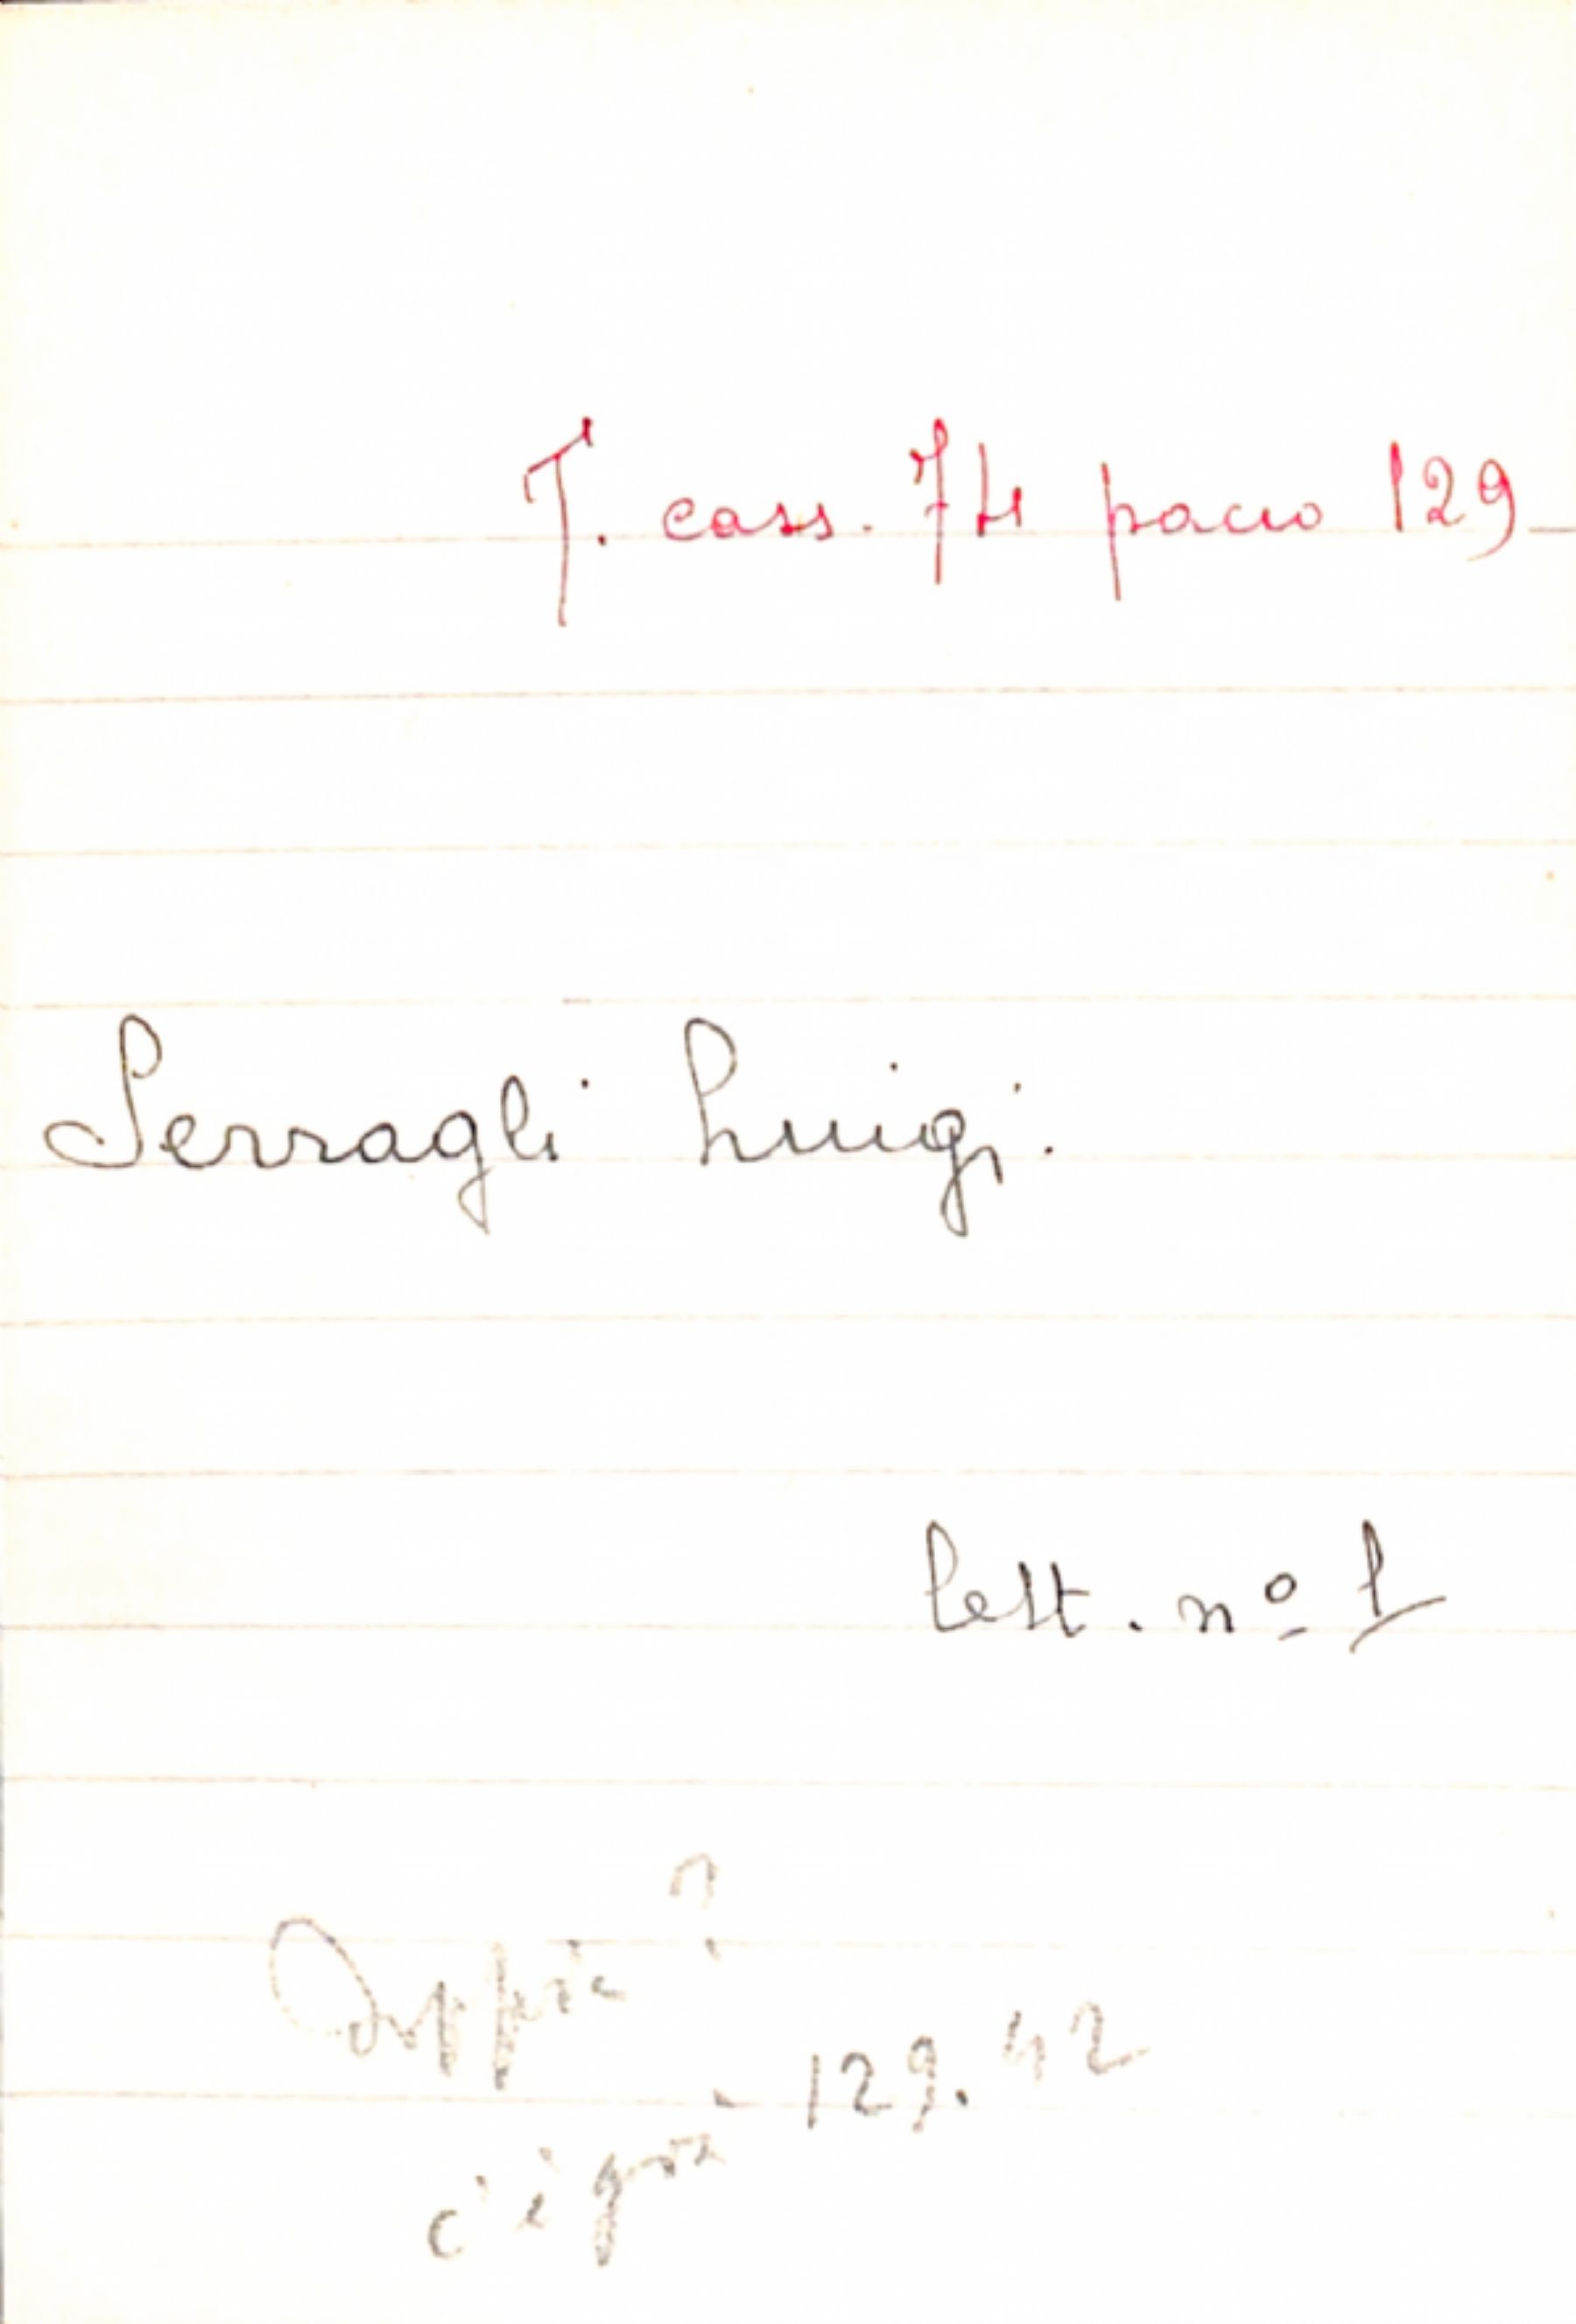 T. cass. 74 pacco 129
Serragli Luigi.
lett. nº 1
Doppia?
c'è già 129.42